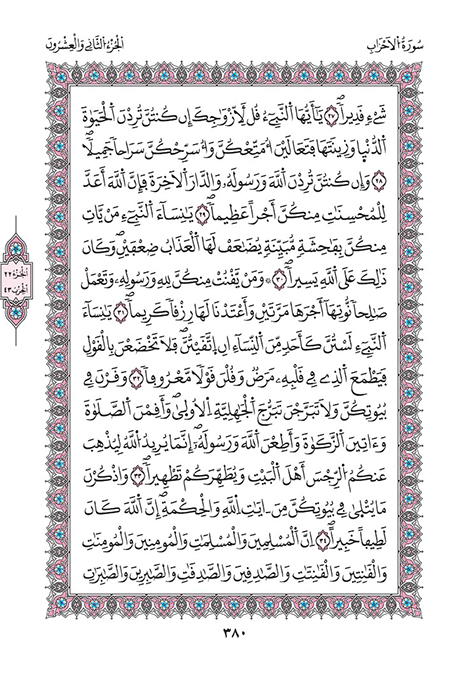 سُورَةُ الاَحْزَابِ
الجُزْءُ الثَّانِي وَالْعِشْرُونَ
شَےْءٖ قَدِيراٗۖ ٢٧ يَٰٓأَيُّهَا اَ۬لنَّبِےٓءُ قُل لِّأَزْوَٰجِكَ إِن كُنتُنَّ تُرِدْنَ اَ۬لْحَيَوٰةَ
اَ۬لدُّنْيَا وَزِينَتَهَا فَتَعَالَيْنَ أُمَتِّعْكُنَّ وَأُسَرِّحْكُنَّ سَرَاحاٗ جَمِيلاٗۖ
٢٨ وَإِن كُنتُنَّ تُرِدْنَ اَ۬للَّهَ وَرَسُولَهُۥ وَالدَّارَ اَ۬لَاخِرَةَ فَإِنَّ اَ۬للَّهَ أَعَدَّ
لِلْمُحْسِنَٰتِ مِنكُنَّ أَجْراً عَظِيماٗۖ ٢٩ يَٰنِسَآءَ اَ۬لنَّبِےٓءِ مَنْ يَّاتِ
مِنكُنَّ بِفَٰحِشَةٖ مُّبَيِّنَةٖ يُضَٰعَفْ لَهَا اَ۬لْعَذَابُ ضِعْفَيْنِۖ وَكَانَ
ذَٰلِكَ عَلَى اَ۬للَّهِ يَسِيراٗۖ ٣٠ وَمَنْ يَّقْنُتْ مِنكُنَّ لِلهِ وَرَسُولِهِۦ وَتَعْمَلْ
صَٰلِحاٗ نُّوتِهَآ أَجْرَهَا مَرَّتَيْنِ وَأَعْتَدْنَا لَهَا رِزْقاٗ كَرِيماٗۖ ٣١ يَٰنِسَآءَ
اَ۬لنَّبِےٓءِ لَسْتُنَّ كَأَحَدٖ مِّنَ اَ۬لنِّسَآءِ انِ اِ۪تَّقَيْتُنَّۖ فَلَا تَخْضَعْنَ بِالْقَوْلِ
فَيَطْمَعَ اَ۬لذِے فِے قَلْبِهِۦ مَرَضٞ وَقُلْنَ قَوْلاٗ مَّعْرُوفاٗۖ ٣٢ وَقَرْنَ فِے
بُيُوتِكُنَّ وَلَا تَبَرَّجْنَ تَبَرُّجَ اَ۬لْجَٰهِلِيَّةِ اِ۬لُاول۪يٰۖ وَأَقِمْنَ اَ۬لصَّلَوٰةَ
وَءَاتِينَ اَ۬لزَّكَوٰةَ وَأَطِعْنَ اَ۬للَّهَ وَرَسُولَهُۥٓۖ إِنَّمَا يُرِيدُ اُ۬للَّهُ لِيُذْهِبَ
عَنكُمُ اُ۬لرِّجْسَ أَهْلَ اَ۬لْبَيْتِ وَيُطَهِّرَكُمْ تَطْهِيراٗۖ ٣٣ وَاذْكُرْنَ
مَا يُتْل۪يٰ فِے بُيُوتِكُنَّ مِنَ اٰيَٰتِ اِ۬للَّهِ وَالْحِكْمَةِۖ إِنَّ اَ۬للَّهَ كَانَ
لَطِيفاً خَبِيراًۖ ٣٤ اِنَّ اَ۬لْمُسْلِمِينَ وَالْمُسْلِمَٰتِ وَالْمُومِنِينَ وَالْمُومِنَٰتِ
وَالْقَٰنِتِينَ وَالْقَٰنِتَٰتِ وَالصَّٰدِقِينَ وَالصَّٰدِقَٰتِ وَالصَّٰبِرِينَ وَالصَّٰبِرَٰتِ
الجُزْءُ ٢٢
الحِزْبُ ٤٣
٣٨٠